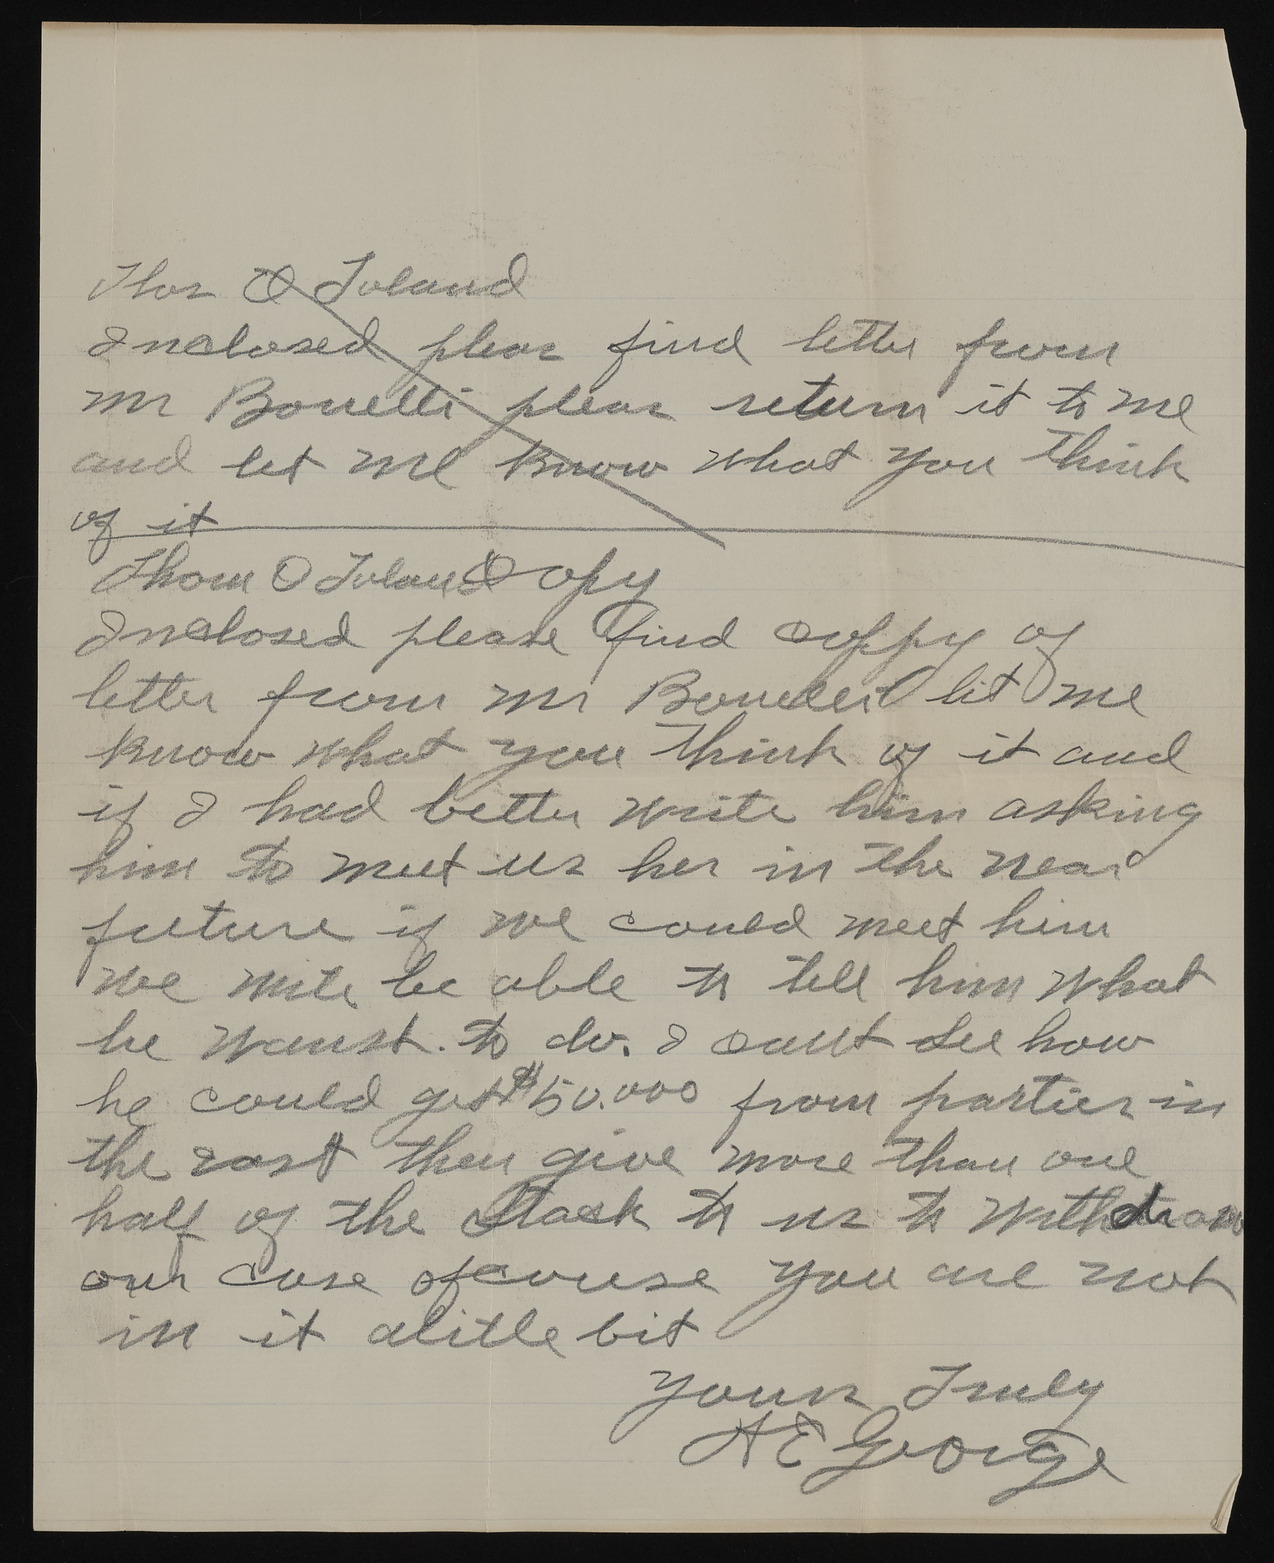 Thos O Toland
Inclosed pleas find letter from
Mr Bonelli pleas return it to me
and let me know what you think
of it
Thom O Toland Copy
Inclosed please find coppy of
letter from Mr Bonelli let me
know what you think of it and
if I had better write him asking
him to meet us her in the near
future if we could meet him
we mite be able to tell him what
he wanst to do. I cant see how
he could get $50.000 from parties in
the east then give more than one
half of the stock to us to withdraw
our case of course you are not
in it alitle bit
Yours Truly
A E George